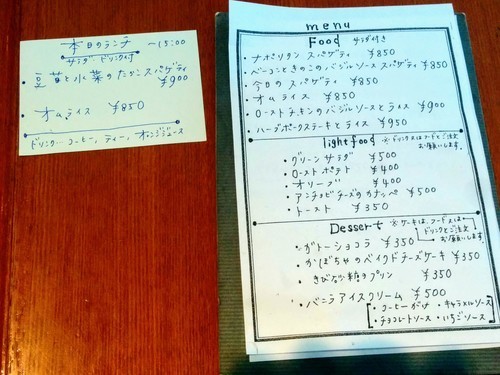 本日のランチ ～15:00
サラダ ドリンク付
・豆苗と小葉のたらこスパゲティ ¥900
・オムライス ¥850
ドリンク…コーヒー、ティー、オレンジジュース
menu
Food サラダ付き
・ナポリタン スパゲティ ¥850
・ベーコンときのこのバジルソーススパゲティ ¥850
・今日の スパゲティ ¥850
・オム ライス ¥850
・ローストチキンのバジルソースとライス ¥900
・ハーブポークステーキとライス ¥950
lightfood ※ドリンク又はフードとご注文お願いします。
・グリーンサラダ ¥500
・ローストポテト ¥400
・オリーブ ¥400
・アンチョビチーズのカナッペ ¥500
・トースト ¥350
Dessert ※ケーキは、フード又はドリンクとご注文お願いします。
・ガトーショコラ ¥350
・かぼちゃのベイクドチーズケーキ ¥350
・きびなり糖のプリン ¥350
・バニラアイスクリーム ¥500
・コーヒーがけ ・キャラメルソース
・チョコレートソース ・いちごソース